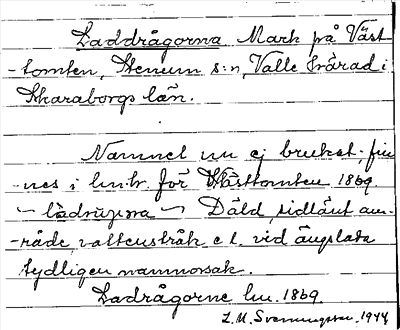 Laddrågorna Mark på Väst-
-tomten, Stenum s:n, Valle härad i
Skaraborgs län.
Namnet nu ej brukat; fin-
-nes i lm.tr. för Västtomten 1869.
Däld, sidlänt om-
-råde, vattenstråk e.l. vid ängslada
tydligen namnorsak.
Ladrågorne lm. 1869.
L.M. Svenungsson. 1944